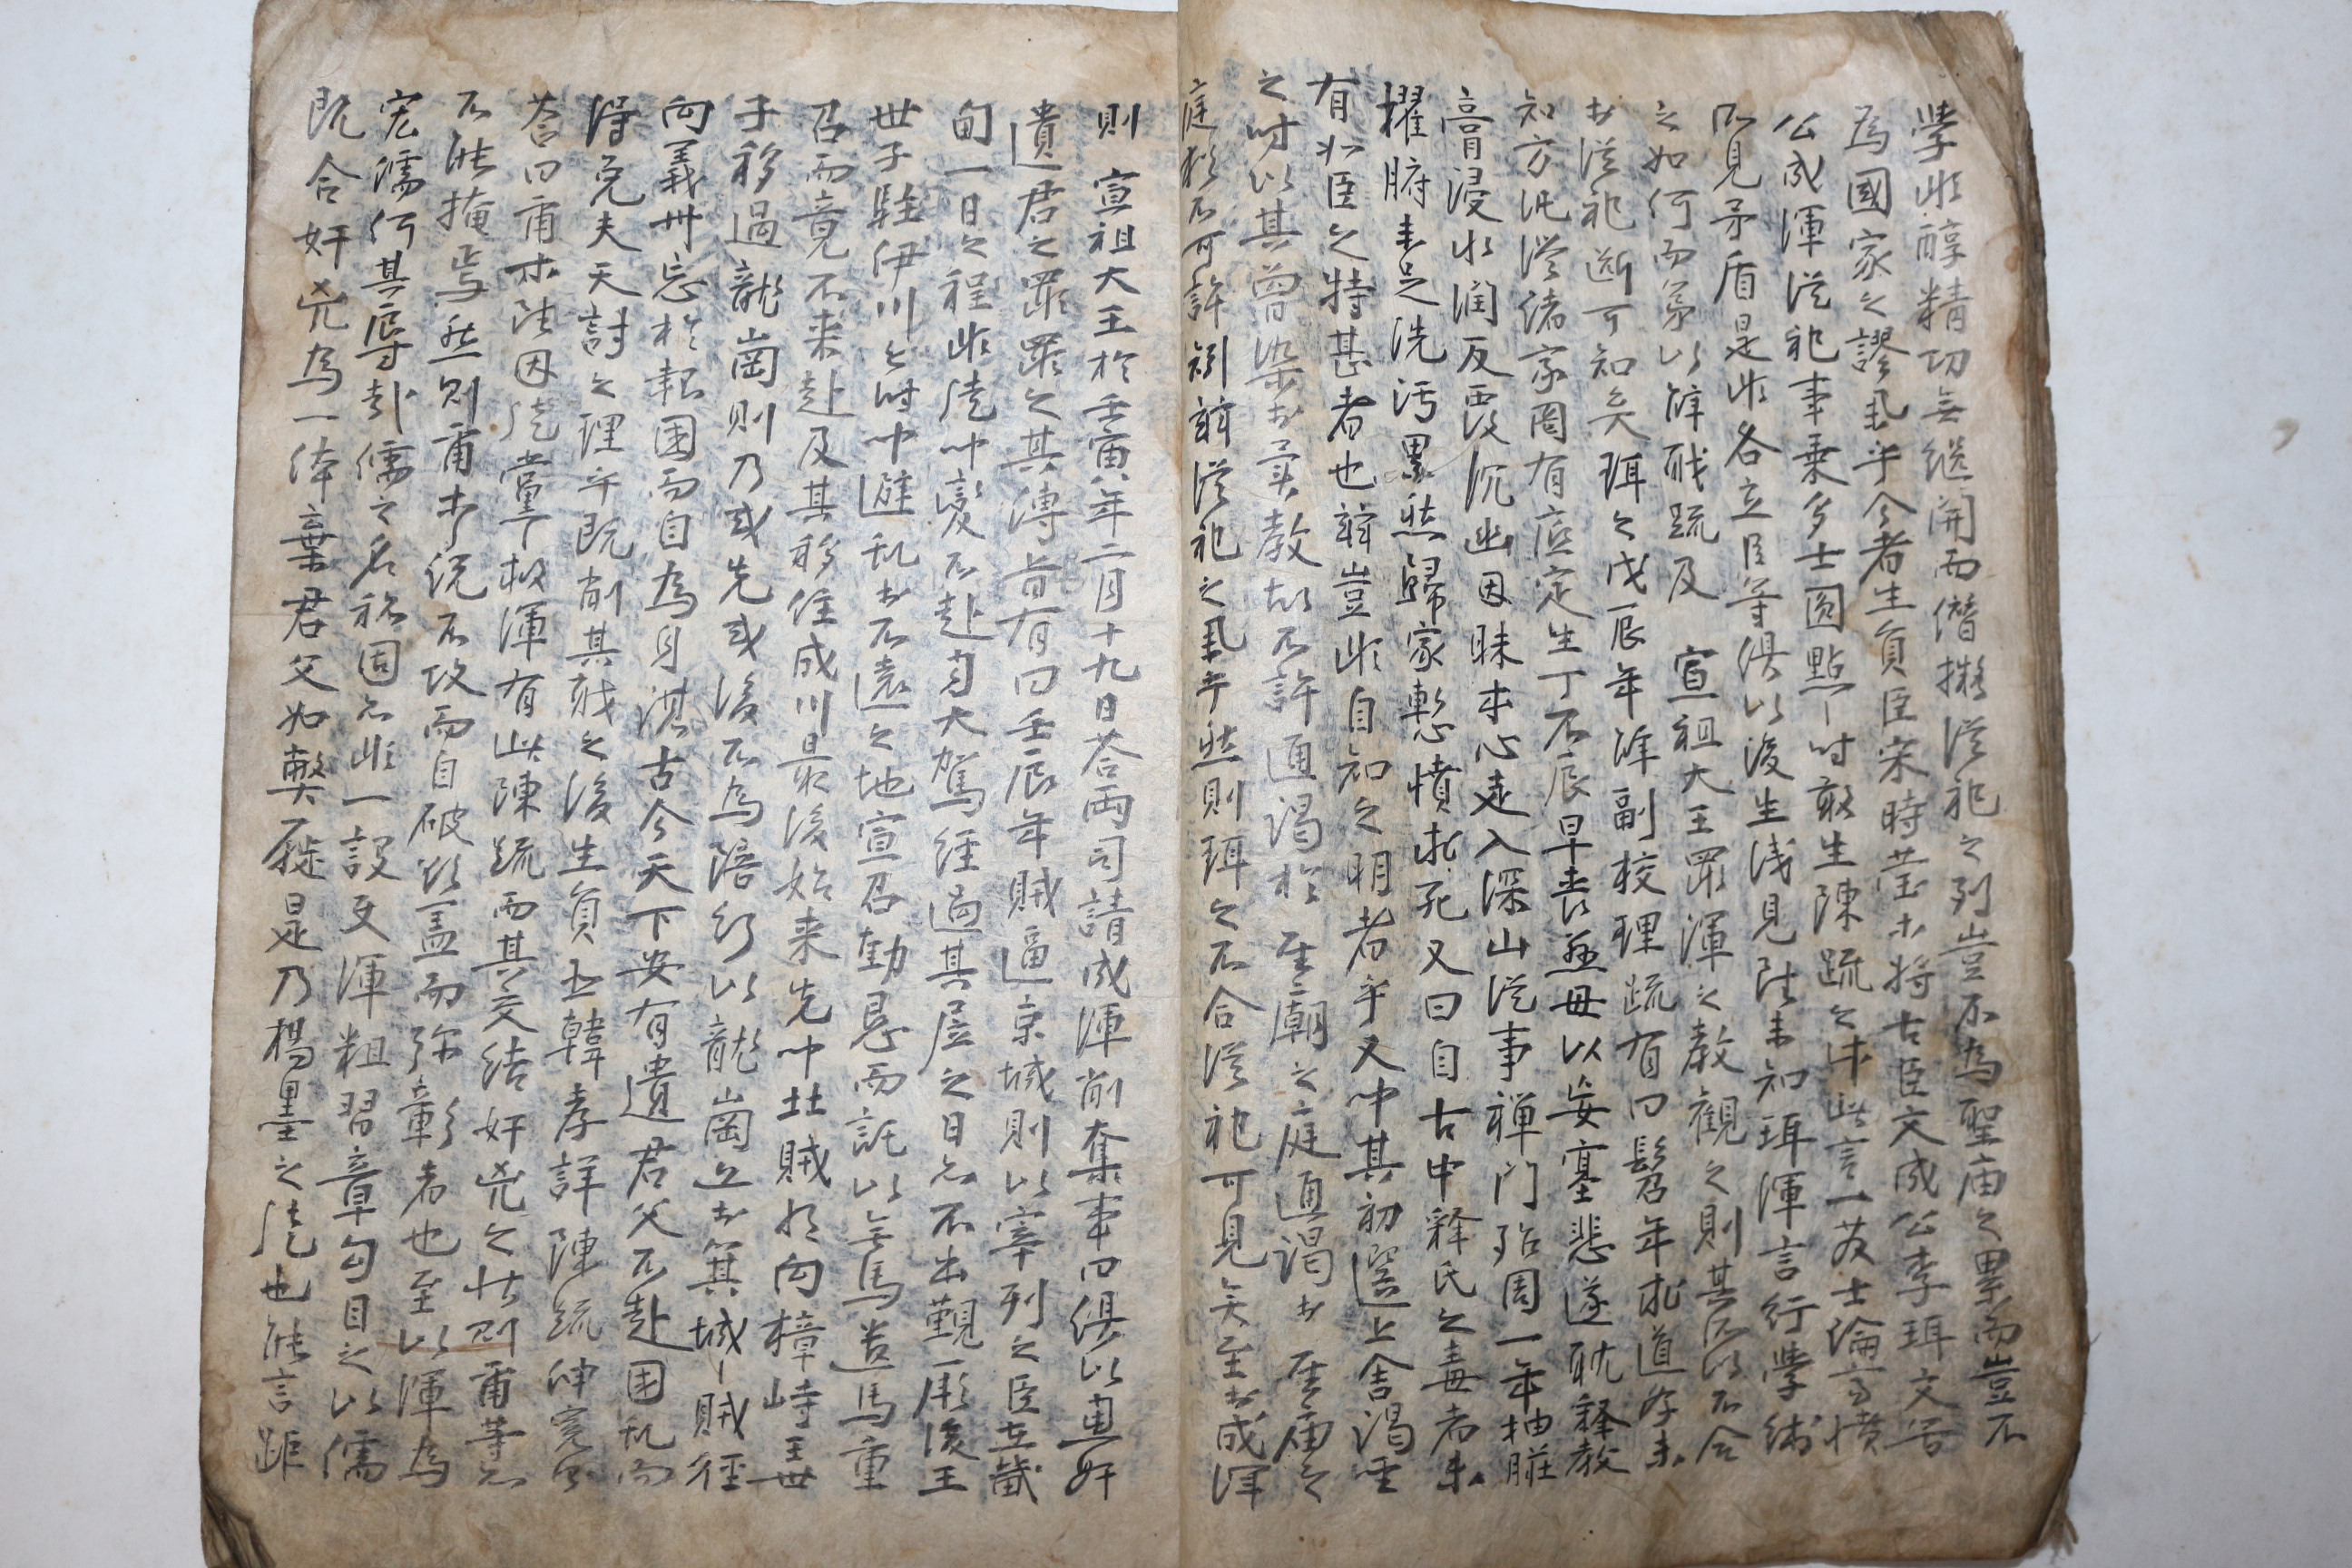 學非醇精功無繼開而僭擬從祀之列豈不爲聖庙之累而豈不
爲國家之謬擧乎今者生員臣宋時瑩等將古臣文成公李珥文
公成渾從祀事乘多士圓點時敢生陳疏之計此言一發士論
不見矛盾是非各立臣等俱以後生淺見雖未知珥渾言行學術
之如何而第以觧職疏及 宣祖大王罪渾之教觀之則其所以不合
於從祀斷可知矣珥之戊辰年辞副校理疏有曰髫年求道學未
知方汎從諸家罔有底定生丁不辰早喪慈母以妄塞悲遂耽釋教
膏浸水润反覆沉幽因昧本心走入深山從事禪門殆周一年抽臟
擢腑未足洗汚累然歸家慙憤求死又曰自古中釋氏之毒者未
有如臣之特甚者也豈非自知之明者乎又中其初選上舍謁聖
之时以其曾染於異教故不許通謁於 聖廟之庭通謁於 聖庙之
庭猶不可許則從祀之擧乎然則珥之不合從祀可見矣至於成渾
則 宣祖大王於壬寅年二月十九日荅両司請成渾削奪事曰俱以車奸
遺君之罪罪之其傳旨有曰壬辰年賊逼京城則以宰列之臣在畿
甸一日之程非徒中變不赴自大駕經過其居之日亦不出觀厥後王
世子駐伊川之时中避乱於不遠之地宣召勤懇而託以無馬送馬重
召而竟不来赴及其移住成川最後始来先中北賊形向樟峙王世
子移過龍崗則乃或先或後不爲陪行以龍崗近於箕城賊徑
向義州忘於報國而自爲身謀古今天下安有遺君父不赴国乱而
得免夫天討之理乎既削其職之後生員臣韓孝詳陳疏伸寃則
荅曰甫亦陸因徒黨下救渾有此陳疏而其交結奸兇之狀則甫等亦
不能掩焉然則甫等說不攻而自破欲盖而弥彰者也至以渾爲
宏儒何其辱哉儒之名稱固亦非一設使渾粗習章句目之以儒
既合奸兇爲一体棄君父如弊屣是乃楊墨之徒也能言距